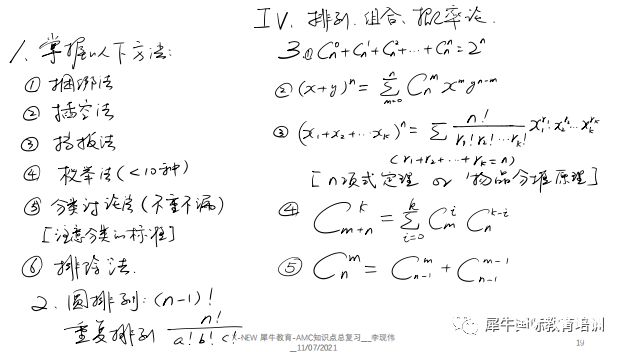 IV. 排列.组合、概率论.
1. 掌握以下方法:
① 捆绑法
② 插空法
③ 挡板法
④ 枚举法(<10种)
⑤ 分类讨论法(不重不漏)
[注意分类的标准]
⑥ 排除法.
2. 圆排列: (n-1)!
重复排列 n!/(a!b!c!)
3. ① C_n^0+C_n^1+C_n^2+⋯+C_n^n=2^n
② (x+y)^n = ∑_{m=0}^{n} C_n^m x^m y^{n-m}
③ (x_1+x_2+⋯x_k)^n = ∑ n!/(r_1!r_2!⋯r_k!) x_1^{r_1} x_2^{r_2}⋯x_k^{r_k}
(r_1+r_2+⋯+r_k=n)
[n项式定理 or 物品分堆原理]
④ C_{m+n}^k = ∑_{i=0}^{k} C_m^i C_n^{k-i}
⑤ C_n^m = C_{n-1}^m + C_{n-1}^{m-1}
-NEW 犀牛教育-AMC知识点总复习__李现伟
_11/07/2021
犀牛国际教育培训
19